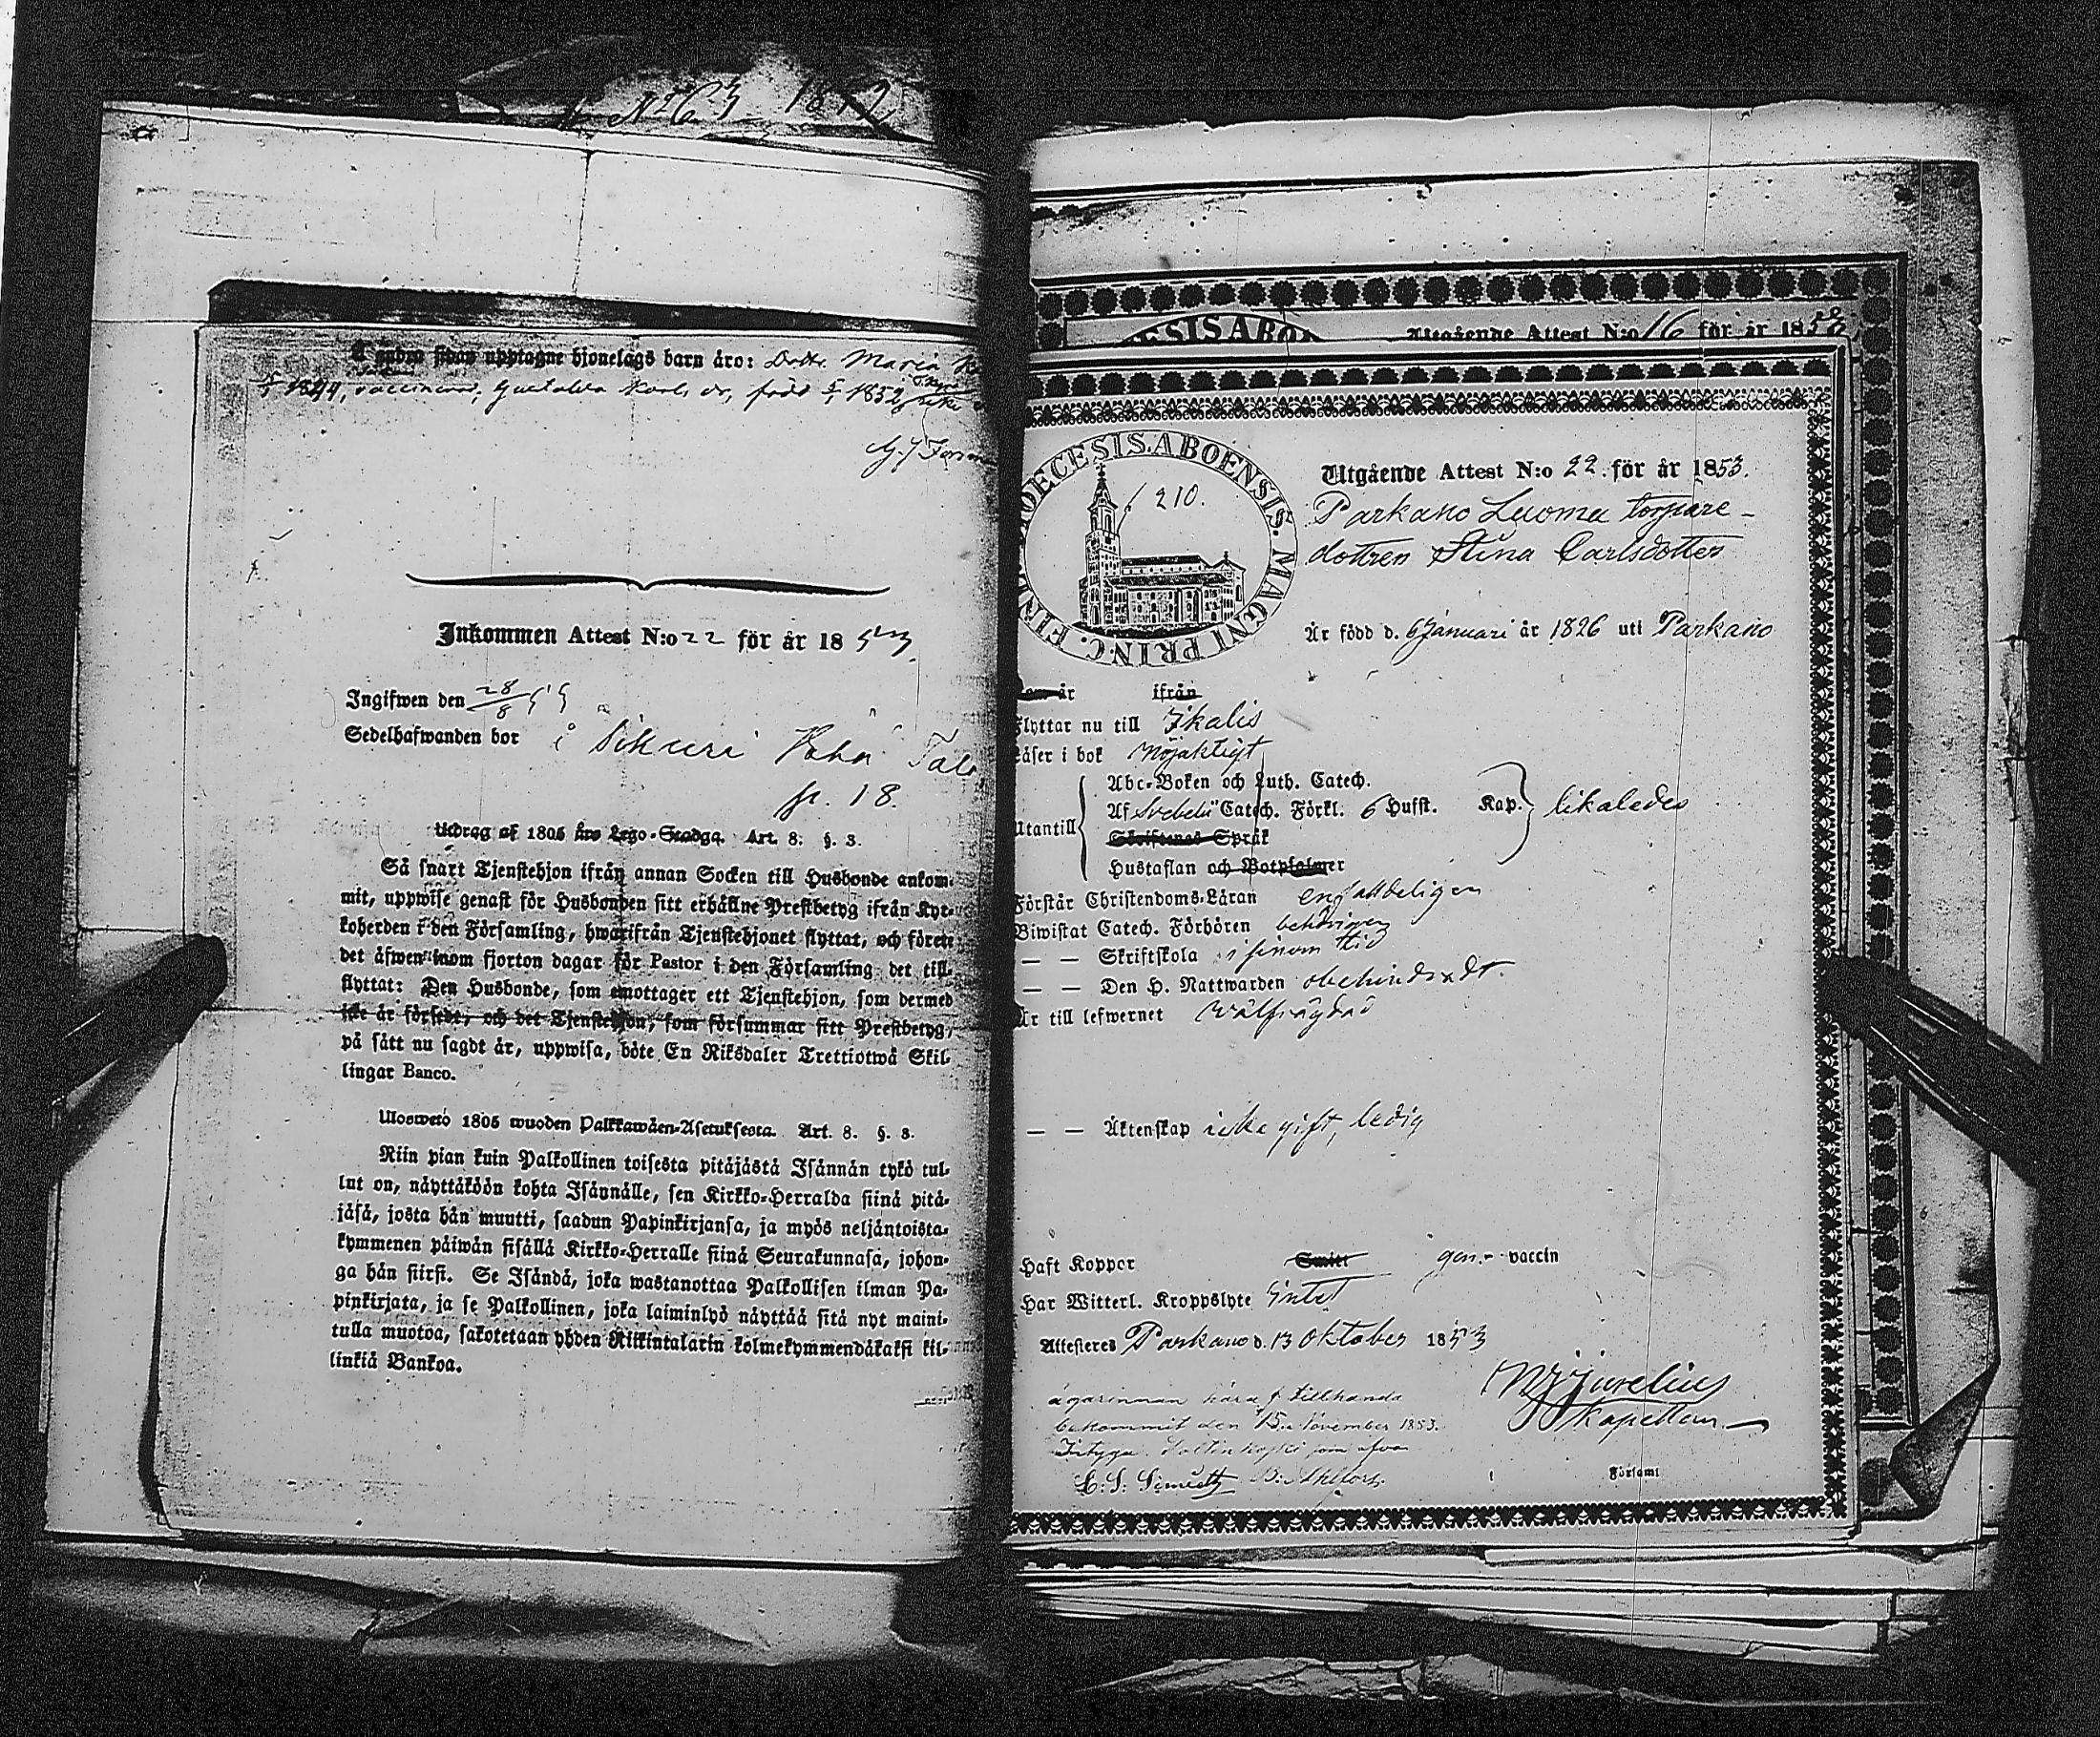 No 63 1852
andra sidan upptagne hjonelags barn äro: Dottr. Maria
1844, vaccinerad, Gustafva Karls dr, född 1852
Inkommen Attest N:o 22 för år 1853
Ingifwen den 28/8 55
Sedelhafwanden bor i Sikuri
p. 18.
Utdrag af 1805 års Lego-Stadga. Art. 8. §. 3.
Så snart Tjenstehjon ifrån annan Socken till Husbonde ankom-
mit, uppwise genast för Husbonden sitt erhållne Prestbetyg ifrån Kyr-
koherden i den Församling, hwarifrån Tjenstehjonet flyttat, och förete
det äfwen inom fjorton dagar för Pastor i den Församling det till-
flyttat: Den Husbonde, som emottager ett Tjenstehjon, som dermed
icke är försedt, och det Tjenstehjon, som försummar sitt Prestbetyg,
på sätt nu sagdt är, uppwisa, böte En Riksdaler Trettiotwå Skil-
lingar Banco.
Ulosweto 1805 wuoden Palkkawäen-Asetuksesta. Art. 8. §. 3.
Niin pian kuin Palkollinen toisesta pitäjästä Isännän tykö tul-
lut on, näyttäköön kohta Isännälle, sen Kirkko-Herralda siinä pitä-
jäsä, josta hän muutti, saadun Papinkirjansa, ja myös neljäntoista-
kymmenen päiwän sisällä Kirkko-Herralle siinä Seurakunnasa, johon-
ga hän siirsi. Se Isändä, joka wastanottaa Palkollisen ilman Pa-
pinkirjata, ja se Palkollinen, joka laiminlyö näyttää sitä nyt maini-
tulla muotoa, sakotetaan yhden Riikintalarin kolmekymmendäkaksi kil-
linkiä Bankoa.
Utgående Attest N:o 16 för år 1853
DIOECESIS. ABOENSIS. MAGNI PRINC. FINL
210.
Utgående Attest N:o 22. för år 1853.
Parkano Luoma torpare-
dottren Stina Carlsdotter
Är född d. 6 Januari år 1826 uti Parkano
är ifrån
Flyttar nu till Ikalis
Läser i bok nöjaktigt
Utantill
Abc-Boken och Luth. Catech.
Af Svebelii Catech. Förkl. 6 Hufst. Kap. likaledes
Skriftenes Språk
Hustaflan och Botpsalmer
Förstår Christendoms-Läran enfaldeligen
Biwistat Catech. Förhören behörigen
— — Skriftskola i sinom tid
— — Den H. Nattwarden obehindradt.
Är till lefwernet wälfrägdad
— — Äktenskap icke gift, ledig
Haft Koppor Smitt gen. vaccin
Har Witterl. Kroppslyte Intet
Attesteres Parkano d. 13 Oktober 1853
Kapellan
ägarinnan häraf tillhanda
bekommit den 15. November 1853.
Intyga
Församl